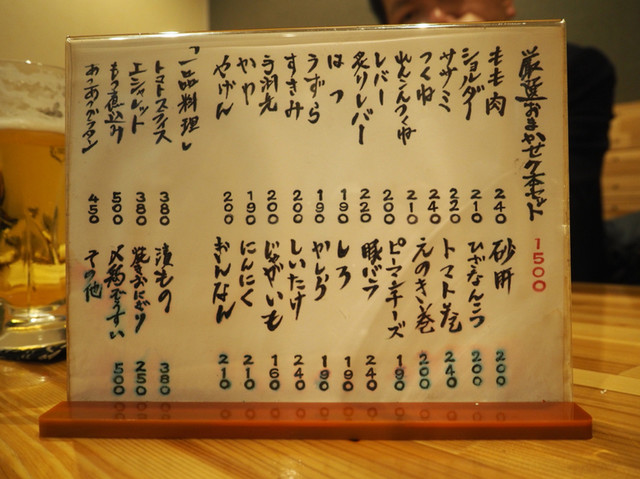 厳選おまかせ7本セット 1500
もも肉 240
ショルダー 210
ササミ 220
つくね 240
れんこんつくね 210
レバー 220
炙りレバー 220
はつ 190
うずら 190
すきみ 200
手羽先 200
かわ 190
やげん 200
砂肝 200
ひざなんこつ 200
トマト巻 240
えのき巻 200
ピーマンチーズ 190
豚バラ 240
しろ 190
かしら 190
しいたけ 240
じゃがいも 160
にんにく 210
ぎんなん 210
「一品料理」
トマトスライス 380
エシャレット 380
もつ煮込み 500
あつあつグラタン 450
漬もの 380
焼きおにぎり 250
〆鶏ぞうすい 500
その他